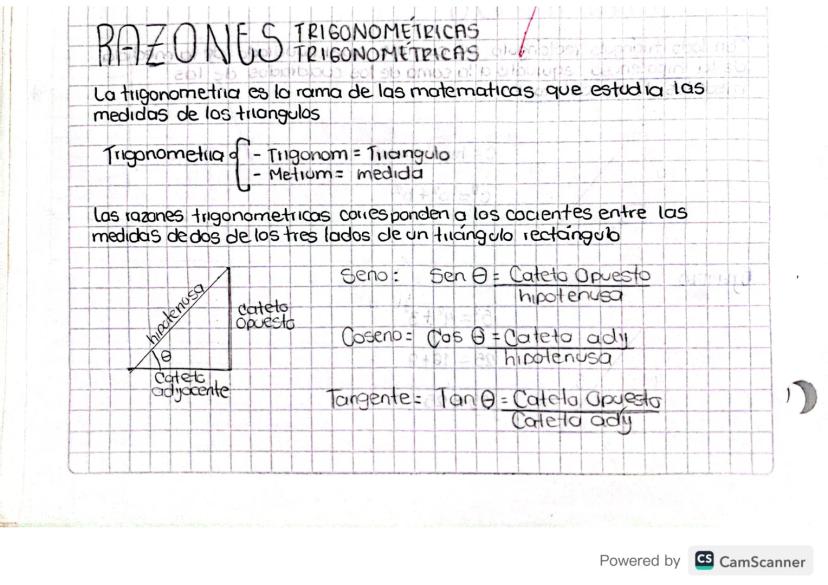 RAZONES TRIGONOMÉTRICAS
TRIGONOMÉTRICAS
La trigonometria es la rama de las matematicas que estudia las
medidas de los triangulos
Trigonometria { - Trigonom = Triangulo
- Metrium = medida
Las razones trigonometricas corresponden a los cocientes entre las
medidas de dos de los tres lados de un triángulo rectángulo
hipotenusa
cateto
opuesto
θ
Cateto
adyacente
Seno: Sen θ = Cateto Opuesto
hipotenusa
Coseno: Cos θ = Cateto ady
hipotenusa
Tangente: Tan θ = Cateto Opuesto
Cateto ady
Powered by CS CamScanner